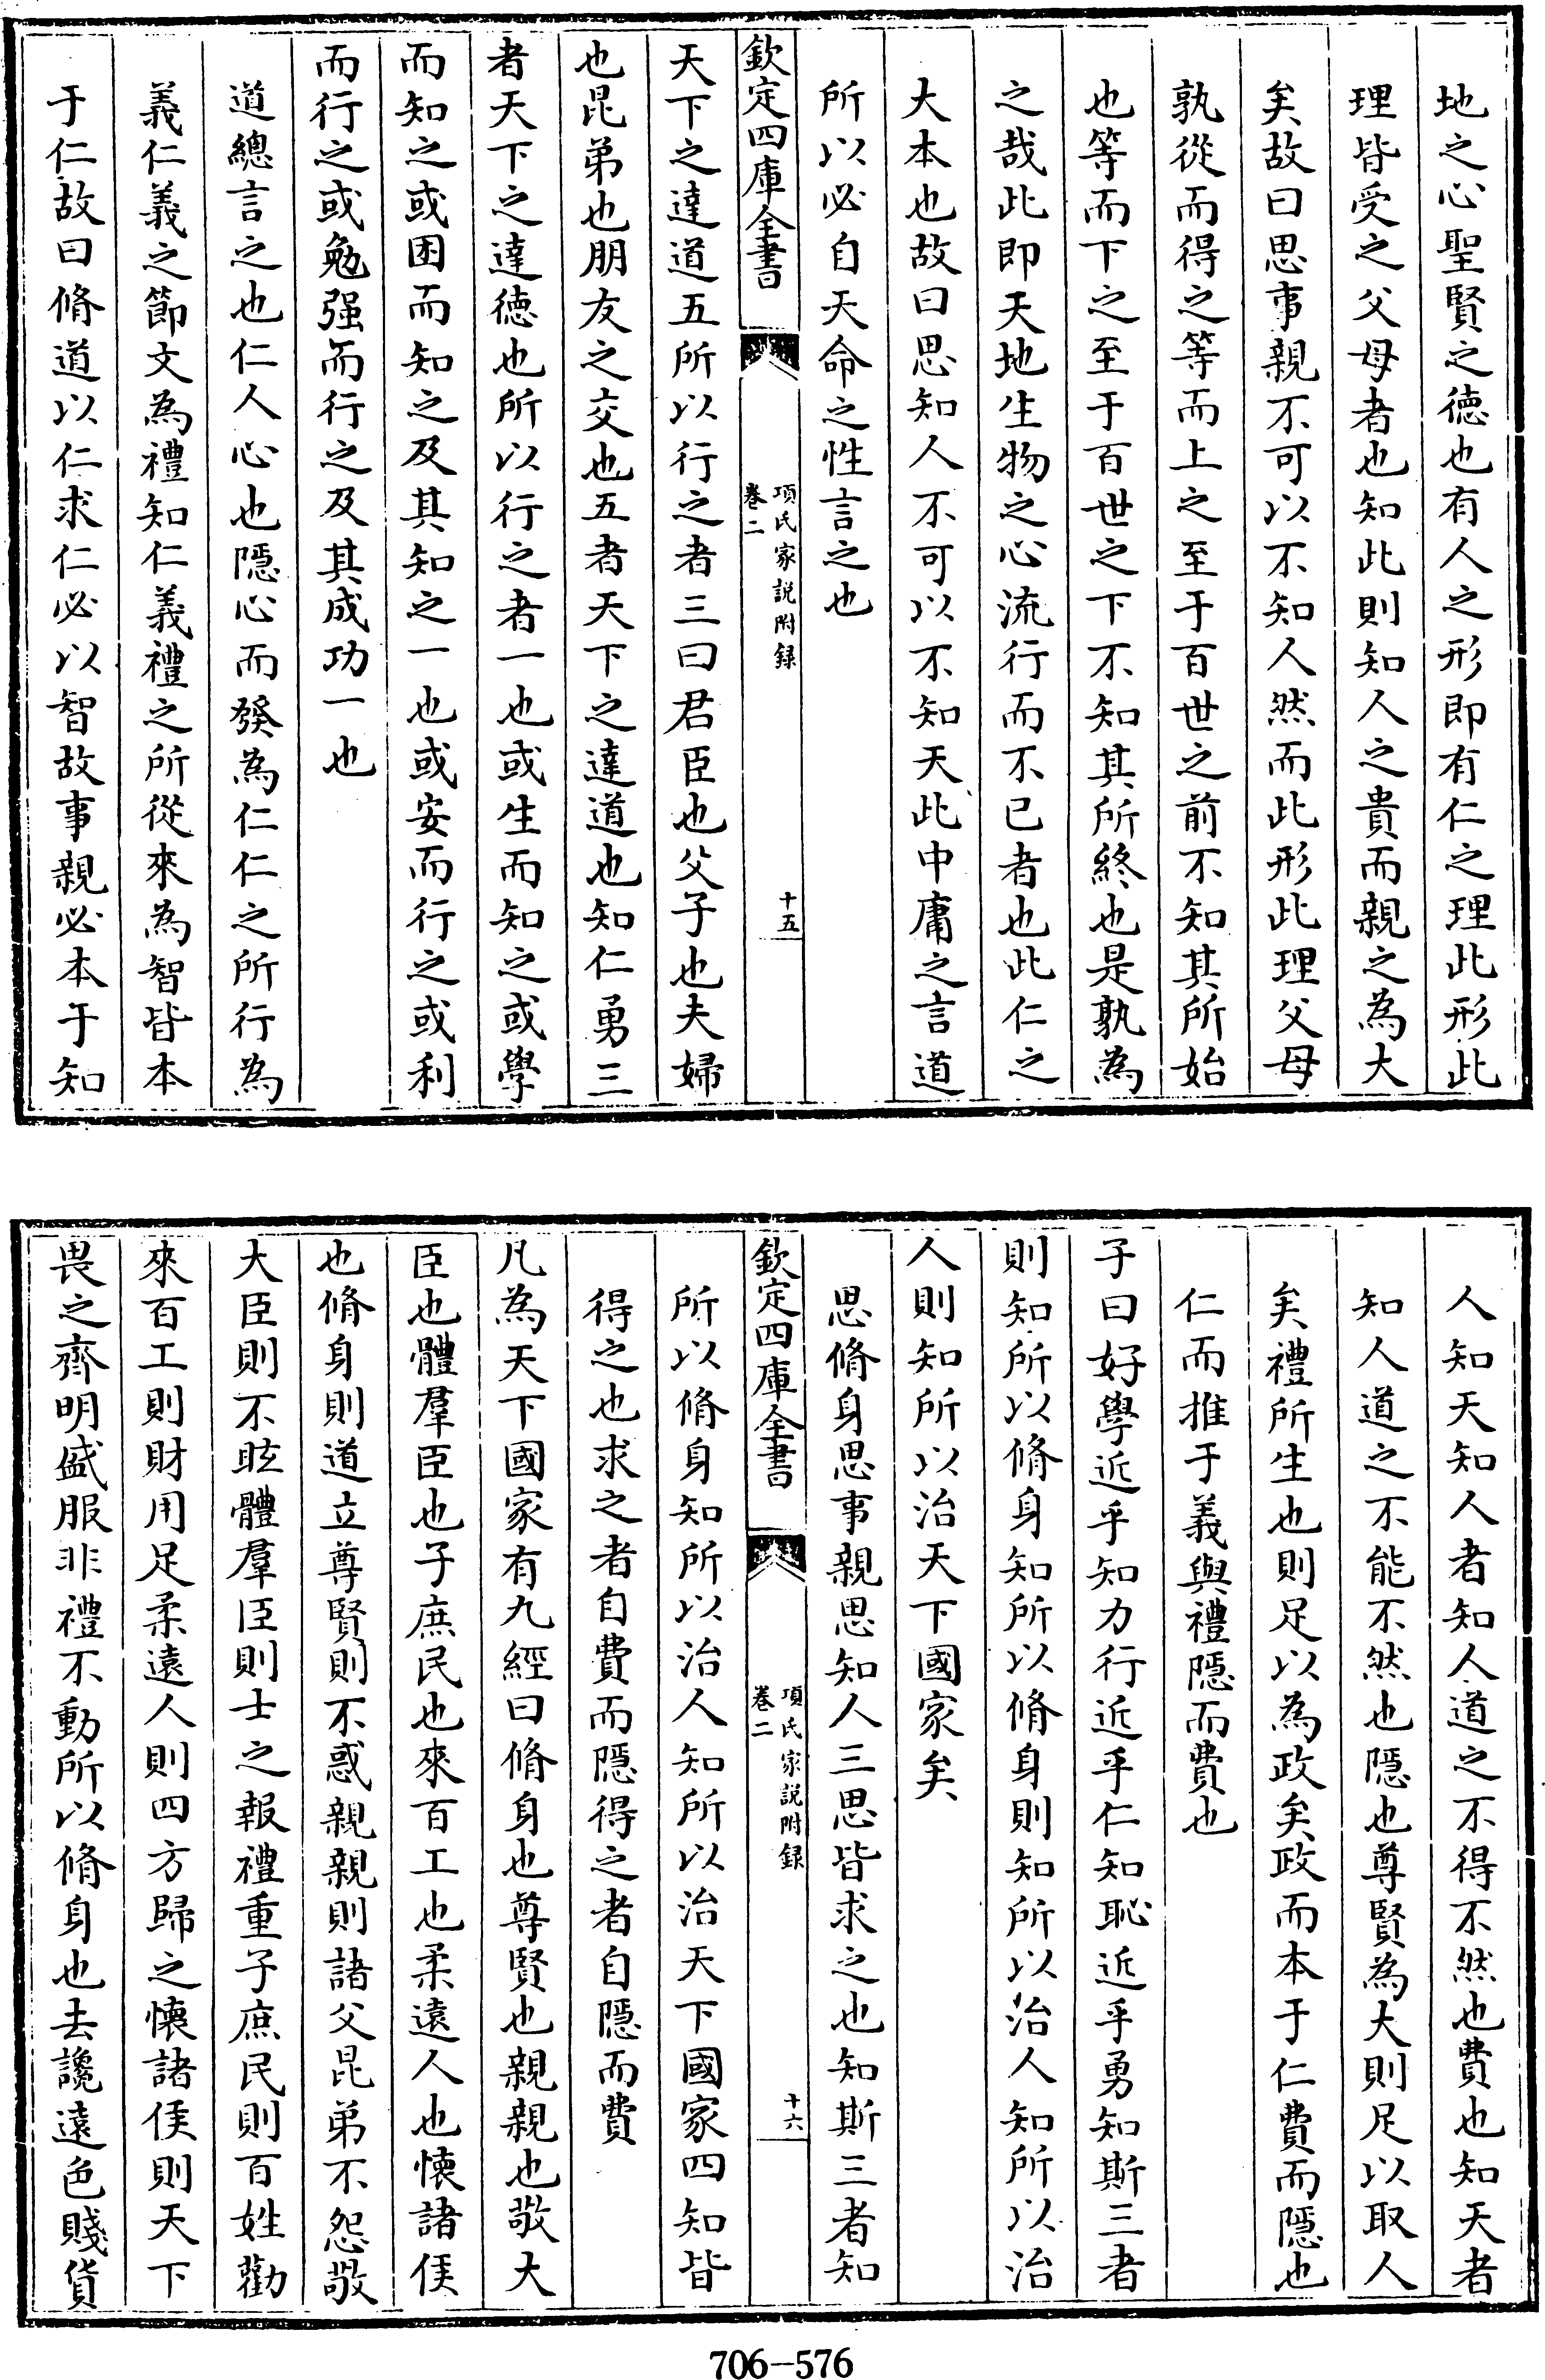 地之心聖賢之德也有人之形即有仁之理此形此
理皆受之父母者也知此則知人之貴而親之為大
矣故曰思事親不可以不知人然而此形此理父母
孰從而得之等而上之至于百世之前不知其所始
也等而下之至于百世之下不知其所終也是孰為
之哉此即天地生物之心流行而不已者也此仁之
大本也故曰思知人不可以不知天此中庸之言道
所以必自天命之性言之也
欽定四庫全書
項氏家説附録
卷二
十五
天下之達道五所以行之者三曰君臣也父子也夫婦
也昆弟也朋友之交也五者天下之達道也知仁勇三
者天下之達德也所以行之者一也或生而知之或學
而知之或困而知之及其知之一也或安而行之或利
而行之或勉强而行之及其成功一也
道總言之也仁人心也隱心而發為仁仁之所行為
義仁義之節文為禮知仁義禮之所從來為智皆本
于仁故曰脩道以仁求仁必以智故事親必本于知
人知天知人者知人道之不得不然也費也知天者
知人道之不能不然也隱也尊賢為大則足以取人
矣禮所生也則足以為政矣政而本于仁費而隱也
仁而推于義與禮隱而費也
子曰好學近乎知力行近乎仁知恥近乎勇知斯三者
則知所以脩身知所以脩身則知所以治人知所以治
人則知所以治天下國家矣
思脩身思事親思知人三思皆求之也知斯三者知
欽定四庫全書
項氏家説附録
卷二
十六
所以脩身知所以治人知所以治天下國家四知皆
得之也求之者自費而隱得之者自隱而費
凡為天下國家有九經曰脩身也尊賢也親親也敬大
臣也體羣臣也子庶民也來百工也柔遠人也懷諸侯
也脩身則道立尊賢則不惑親親則諸父昆弟不怨敬
大臣則不眩體羣臣則士之報禮重子庶民則百姓勸
來百工則財用足柔遠人則四方歸之懷諸侯則天下
畏之齊明盛服非禮不動所以脩身也去讒遠色賤貨
706-576